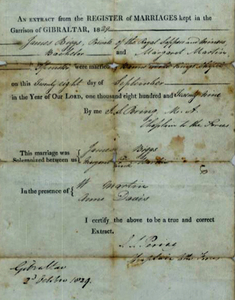 AN EXTRACT from the REGISTER of MARRIAGES kept in the
Garrison of GIBRALTAR, 1829
James Biggs, Private of the Royal Sappers and
Bachelor and Margaret Martin
Spinster were married
on this Twenty eight day of September
in the Year of Our Lord, one thousand eight hundred and Twenty nine
By me
Chaplain to the Forces
This marriage was
Solemnized between us
James Biggs
Martin
In the presence of
W. Martin
Anne Davis
I certify the above to be a true and correct
Extract.
Chaplain to the Forces
Gibraltar
October 1829.